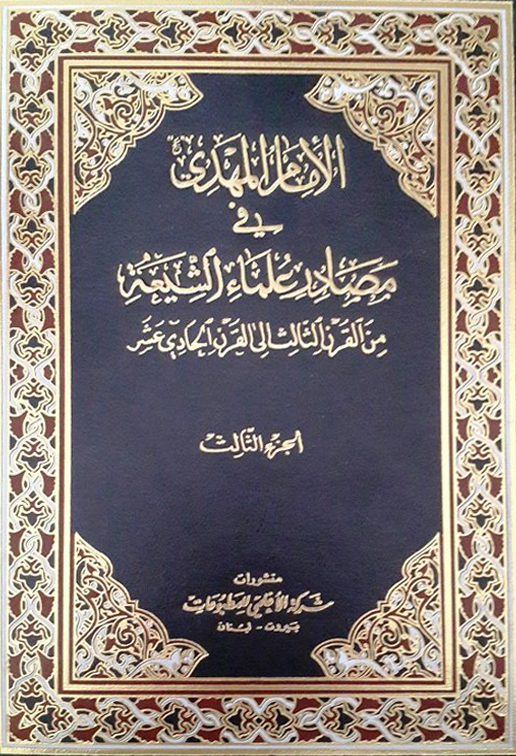 الإمام المهدي
في
مصادر علماء الشيعة
من القرن الثالث إلى القرن الحادي عشر
الجزء الثالث
منشورات
شركة الأعلمي للمطبوعات
بيروت - لبنان